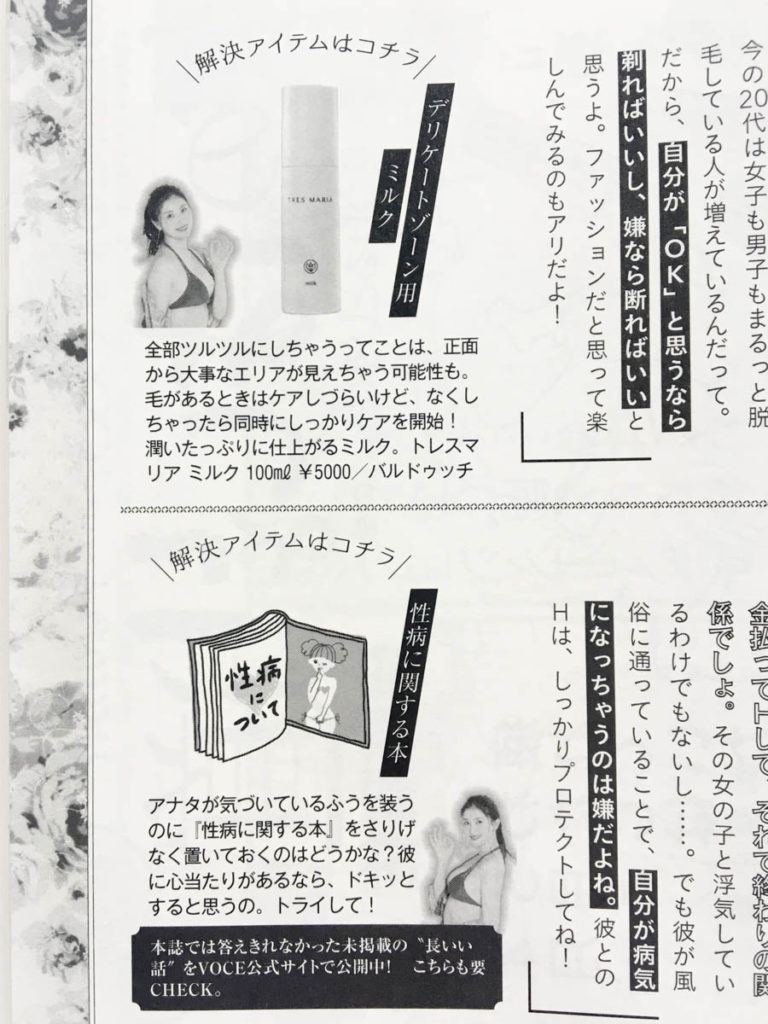 今の20代は女子も男子もまるっと脱
毛している人が増えているんだって。
だから、自分が「OK」と思うなら
剃ればいいし、嫌なら断ればいいと
思うよ。ファッションだと思って楽
しんでみるのもアリだよ！
解決アイテムはコチラ
デリケートゾーン用
ミルク
TRES MARIA
milk
全部ツルツルにしちゃうってことは、正面
から大事なエリアが見えちゃう可能性も。
毛があるときはケアしづらいけど、なくし
ちゃったら同時にしっかりケアを開始！
潤いたっぷりに仕上がるミルク。トレスマ
リア ミルク 100㎖ ￥5000／バルドゥッチ
金払ってHして、それで終わりの関
係でしょ。その女の子と浮気してい
るわけでもないし……。でも彼が風
俗に通っていることで、自分が病気
になっちゃうのは嫌だよね。彼との
Hは、しっかりプロテクトしてね！
解決アイテムはコチラ
性病に関する本
性病
に
ついて
アナタが気づいているふうを装う
のに『性病に関する本』をさりげ
なく置いておくのはどうかな？彼
に心当たりがあるなら、ドキッと
すると思うの。トライして！
本誌では答えきれなかった未掲載の〝長いい
話〟をVOCE公式サイトで公開中！　こちらも要
CHECK。